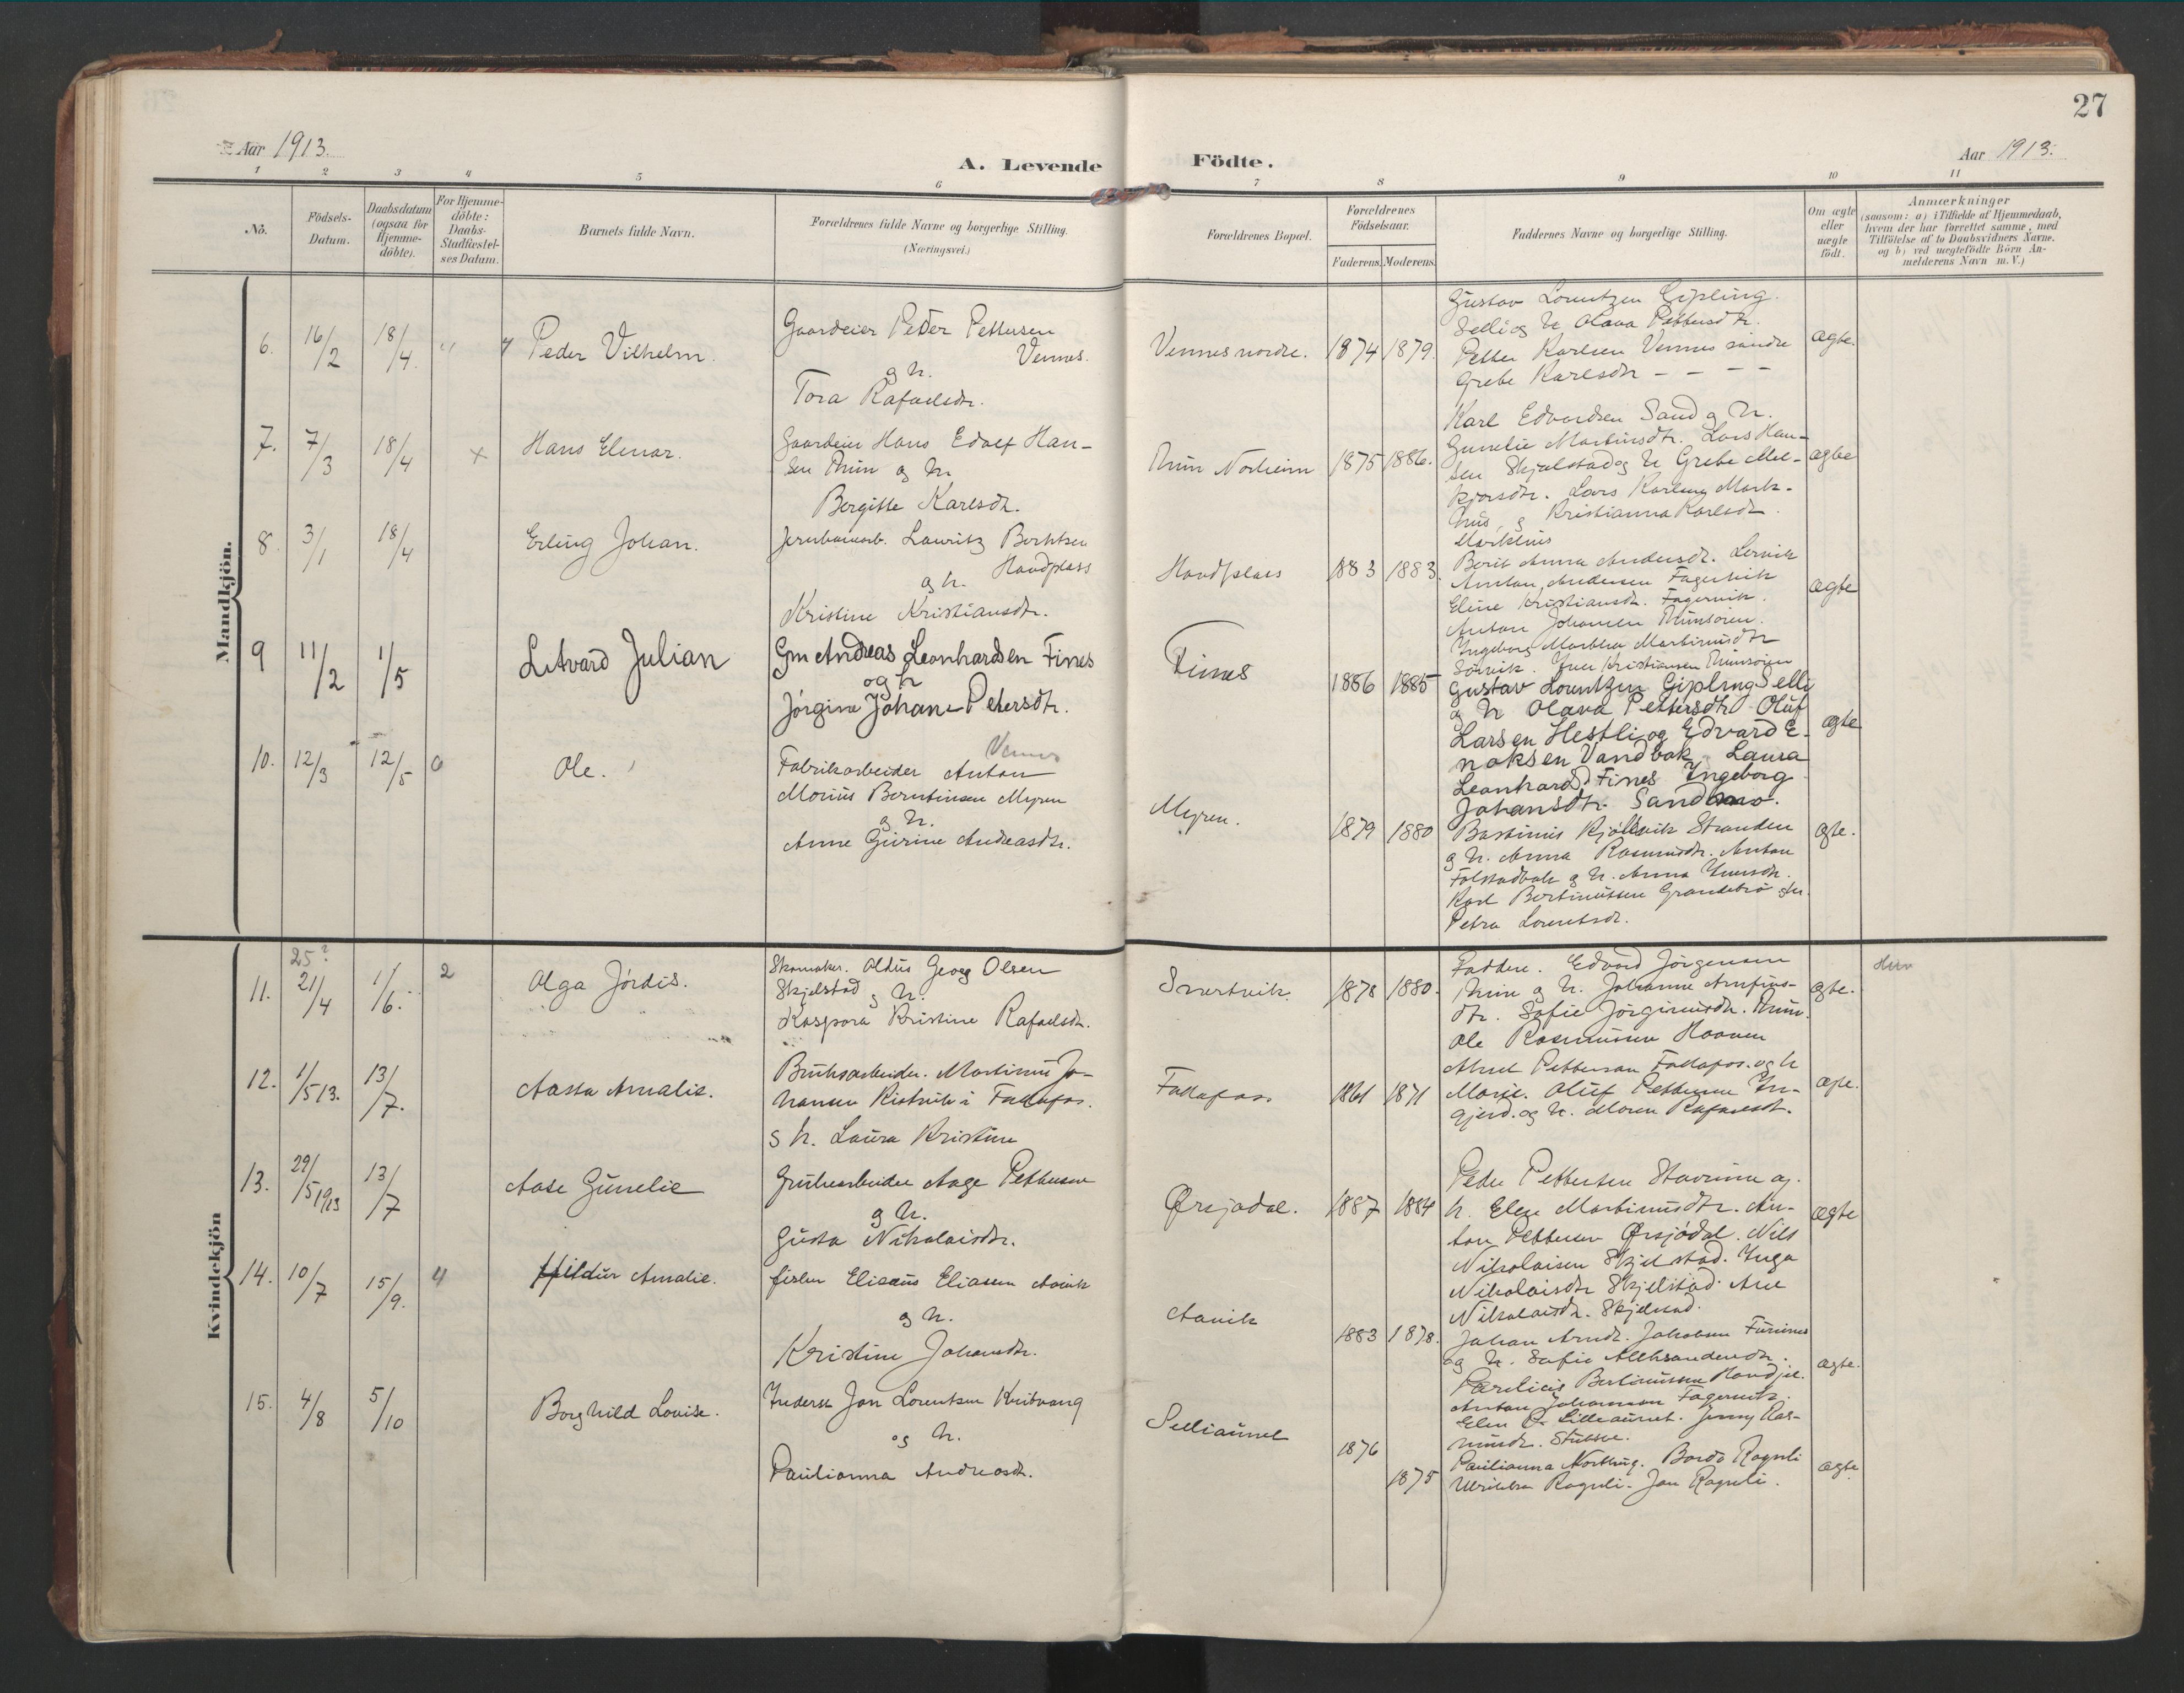 27
Aar 1913.
A. Levende Fødte.
Aar 1913.
1 2 3 4 5 6 7 8 9 10 11
No.
Födsels-Datum.
Daabsdatum (ogsaa for Hjemme-döbte).
For Hjemme-döbte: Daabs-Stadfæstel-ses Datum.
Barnets fulde Navn.
Forældrenes fulde Navne og borgerlige Stilling.
(Næringsvei.)
Forældrenes Bopæl.
Forældrenes Födselsaar.
Faderens. Moderens.
Faddernes Navne og borgerlige Stilling.
Om ægte eller uægte födt.
Anmærkninger
(saasom: a) i Tilfælde af Hjemmedaab,
hvem der har forrettet samme, med
Tilföielse af to Daabsvidners Navne.
og b) ved uægtefödte Börn An-
melderens Navn m. V.)
Mandkjön.
6. 16/2 18/4 " 4 Peder Vilhelm.
Gaardeier Peder Pettersen
Vennes.
og h.
Tora Rafaelsdtr.
Vennes nordre. 1874 1879.
Gustav Lorentzen Gipling
Selli og h. Olava Pettersdtr.
Petter Karlsen Vennes söndre
Grete Karlsdtr - - - -
ægte.
7. 7/3 18/4 x Hans Elenar.
Gaardeier Hans Edolf Han-
sen og h.
Bergitte Karlsdtr.
1875 1886.
Karl Edvardsen Sand og h.
Gunelie Martinsdtr. Lars Han-
sen Skjelstad og h. Grete Mel-
kjorsdtr. Lars Karlsen Mark-
hus, og Kristianna Karlsdtr
Markhus
ægte
8. 3/1 18/4 Erling Johan.
Jernbanearb. Lauritz Berntsen
Havdplass
og h.
Kristine Kristiansdtr.
Havdplass 1883 1883.
Berit Anna Andersdtr. Lervik
Anton Andersen Fagervik
Eline Kristiansdtr. Fagervik.
Anton Johansen
Ingeborg Martha Martinusdtr
Sörvik. Iver Kristiansen
ægte
9 11/2 1/5 Litvard Julian
Gm Andreas Leonhardsen Fines
og h
Jörgine Johane Petersdtr.
Fines 1886 1885
Gustav Lorentzen Gipling Selli
og h Olava Pettersdtr Oluf
Larsen Hestli og Edvard E-
noksen Vandbak Laura
Leonhardsd Fines Ingeborg
Johansdtr. Sandmo.
ægte
10. 12/3 12/5 0 Ole.
Vennes
Fabrikarbeider Anton
Morius Berntinsen Myren
og h.
Anne Gurine Andreasdtr.
Myren. 1879 1880
Bastinus Kjölsvik Stranden
og h. Anna Rasmusdtr. Anton
Folstadbak og h. Anna Iversdtr.
Karl Bertinussen
Petra Lorentsdtr.
ægte.
Kvindekjön
11. 25? 21/4 1/6. 2 Olga Jördis.
Skomaker. Aldus Georg Olsen
Skjelstad og h.
Kaspara Kristine Rafaelsdtr.
Snertvik. 1878 1880.
Faddere. Edvard Jörgensen
og h. Johanne Arnfins-
dtr. Sofie Jörginusdtr.
Ole Rasmussen
ægte.
12. 1/5 13. 13/7. Aasta Amalie.
Bruksarbeider. Martinus Jo-
hansen Ristvik i Follafos.
og h. Laura Kristine
Follafos. 1861 1871
Pettersen Follafos. og h
Marie. Oluf Pettersen
og h.
ægte.
13. 29/5 1913 13/7 Aase Gunelie
Grubearbeider Aage Pettersen
og h.
Gusta Nikolaisdtr.
Örsjödal. 1887 1884
Peder Pettersen og
h. Elen Martinusdtr. An-
ton Pettersen Örsjödal. Nils
Nikolaisen Skjelstad. Inga
Nikolaisdtr Skjelstad. Ane
Nikolaisdtr. Skjelstad.
ægte
14. 10/7 15/9. 4 Hildur Amalie.
fisker Elisæus Eliasen Aavik
og h.
Kristine Johansdtr.
Aavik 1883 1878.
Johan Jakobsen Furunes
og h. Sofie Alleksandersdtr.
Bertinussen
Anton Johansen Fagervik.
Elen Lilleaunet. Jenny Ras-
musdtr.
ægte.
15. 4/8 5/10 Borghild Lovise.
Inderst Jon Lorentsen Kvitvang
og h.
Paulianna Andreasdtr.
Selliaunet 1876 1875
Paulianna Bardo Rognli
Ulrikka Rognli. Jon Rognli.
ægte